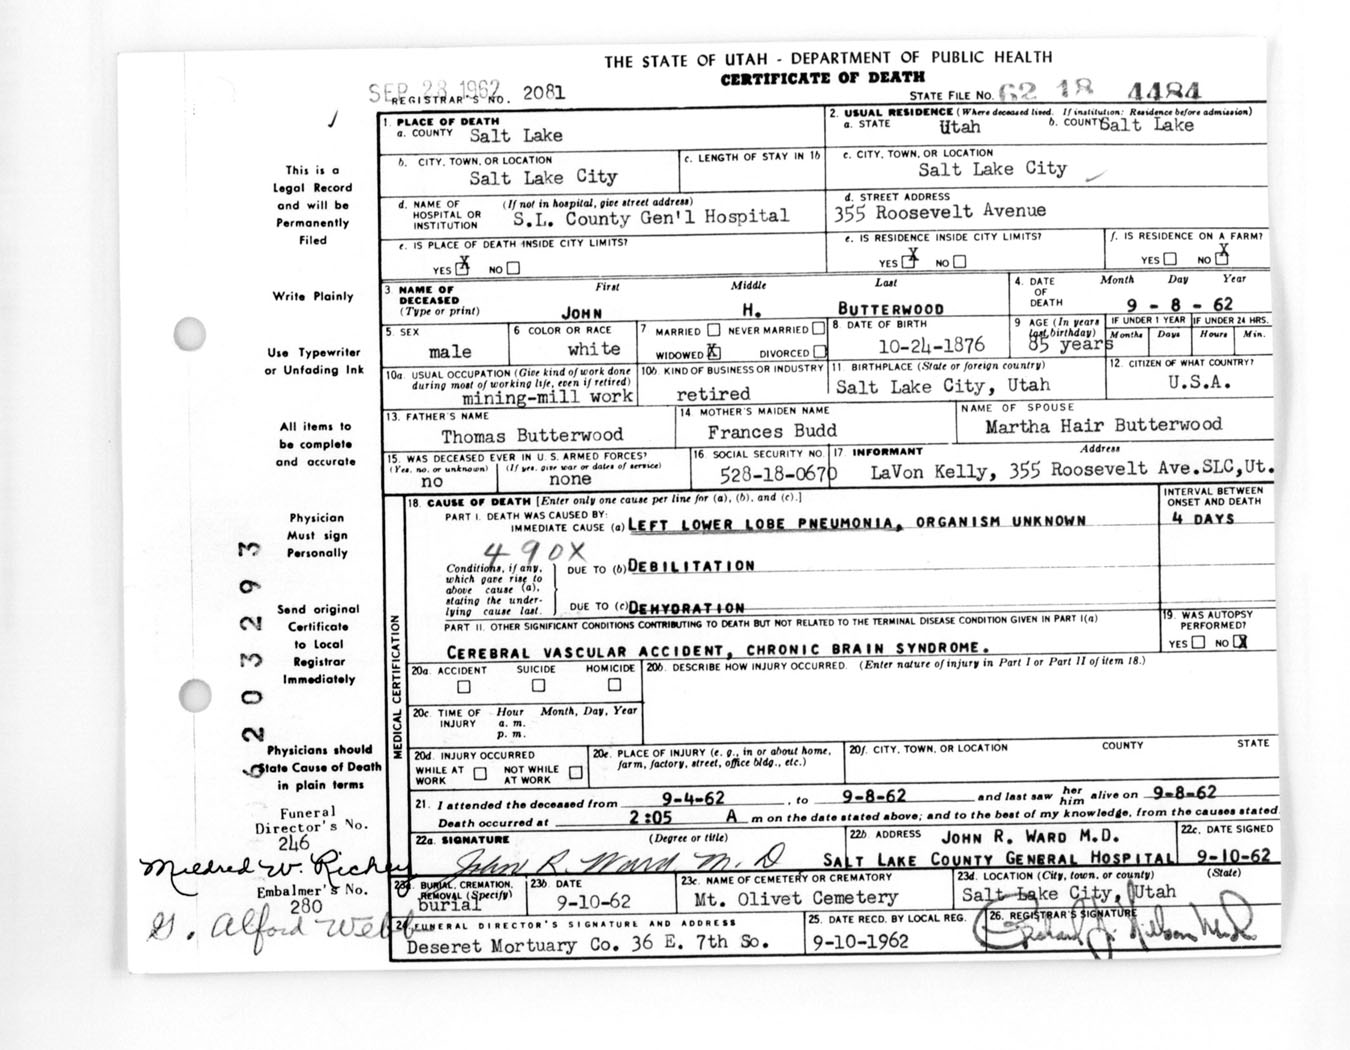 THE STATE OF UTAH - DEPARTMENT OF PUBLIC HEALTH
CERTIFICATE OF DEATH
SEP 28 1962
REGISTRAR'S NO. 2081
STATE FILE NO. 62 18 4484
This is a
Legal Record
and will be
Permanently
Filed
Write Plainly
Use Typewriter
or Unfading Ink
All items to
be complete
and accurate
Physician
Must sign
Personally
Send original
Certificate
to Local
Registrar
Immediately
Physicians should
State Cause of Death
in plain terms
Funeral
Director's No.
246
Mildred W. Richey
Embalmer's No.
280
G. Alford Webb
1. PLACE OF DEATH
a. COUNTY Salt Lake
2. USUAL RESIDENCE (Where deceased lived. If institution: Residence before admission)
a. STATE Utah b. COUNTY Salt Lake
b. CITY, TOWN, OR LOCATION
Salt Lake City
c. LENGTH OF STAY IN 1b
c. CITY, TOWN, OR LOCATION
Salt Lake City
d. NAME OF HOSPITAL OR INSTITUTION (If not in hospital, give street address)
S.L. County Gen'l Hospital
d. STREET ADDRESS
355 Roosevelt Avenue
e. IS PLACE OF DEATH INSIDE CITY LIMITS?
YES X NO
e. IS RESIDENCE INSIDE CITY LIMITS?
YES X NO
f. IS RESIDENCE ON A FARM?
YES NO X
3. NAME OF DECEASED (Type or print) First Middle Last
JOHN H. BUTTERWOOD
4. DATE OF DEATH Month Day Year
9 - 8 - 62
5. SEX
male
6 COLOR OR RACE
white
7 MARRIED NEVER MARRIED
WIDOWED X DIVORCED
8. DATE OF BIRTH
10-24-1876
9 AGE (In years last birthday)
85 years
IF UNDER 1 YEAR IF UNDER 24 HRS.
Months Days Hours Min.
10a. USUAL OCCUPATION (Give kind of work done during most of working life, even if retired)
mining-mill work
10b. KIND OF BUSINESS OR INDUSTRY
retired
11. BIRTHPLACE (State or foreign country)
Salt Lake City, Utah
12. CITIZEN OF WHAT COUNTRY?
U.S.A.
13. FATHER'S NAME
Thomas Butterwood
14 MOTHER'S MAIDEN NAME
Frances Budd
NAME OF SPOUSE
Martha Hair Butterwood
15. WAS DECEASED EVER IN U. S. ARMED FORCES?
(Yes, no, or unknown) (If yes, give war or dates of service)
no none
16. SOCIAL SECURITY NO.
528-18-0670
17. INFORMANT Address
LaVon Kelly, 355 Roosevelt Ave.SLC,Ut.
MEDICAL CERTIFICATION
18. CAUSE OF DEATH [Enter only one cause per line for (a), (b), and (c).]
INTERVAL BETWEEN ONSET AND DEATH
PART I. DEATH WAS CAUSED BY:
IMMEDIATE CAUSE (a) LEFT LOWER LOBE PNEUMONIA, ORGANISM UNKNOWN
4 DAYS
490X
Conditions, if any, which gave rise to above cause (a), stating the underlying cause last.
DUE TO (b) DEBILITATION
DUE TO (c) DEHYDRATION
PART II. OTHER SIGNIFICANT CONDITIONS CONTRIBUTING TO DEATH BUT NOT RELATED TO THE TERMINAL DISEASE CONDITION GIVEN IN PART I(a)
CEREBRAL VASCULAR ACCIDENT, CHRONIC BRAIN SYNDROME.
19. WAS AUTOPSY PERFORMED?
YES NO X
20a. ACCIDENT SUICIDE HOMICIDE
20b. DESCRIBE HOW INJURY OCCURRED. (Enter nature of injury in Part I or Part II of item 18.)
20c. TIME OF INJURY Hour Month, Day, Year
a. m.
p. m.
20d. INJURY OCCURRED
WHILE AT WORK NOT WHILE AT WORK
20e. PLACE OF INJURY (e. g., in or about home, farm, factory, street, office bldg., etc.)
20f. CITY, TOWN, OR LOCATION COUNTY STATE
21. I attended the deceased from 9-4-62, to 9-8-62 and last saw her him alive on 9-8-62
Death occurred at 2:05 A m on the date stated above; and to the best of my knowledge, from the causes stated.
22a. SIGNATURE (Degree or title)
John R. Ward M. D
22b. ADDRESS JOHN R. WARD M.D.
SALT LAKE COUNTY GENERAL HOSPITAL
22c. DATE SIGNED
9-10-62
23a. BURIAL, CREMATION, REMOVAL (Specify)
burial
23b. DATE
9-10-62
23c. NAME OF CEMETERY OR CREMATORY
Mt. Olivet Cemetery
23d. LOCATION (City, town, or county) (State)
Salt Lake City, Utah
24. FUNERAL DIRECTOR'S SIGNATURE AND ADDRESS
Deseret Mortuary Co. 36 E. 7th So.
25. DATE RECD. BY LOCAL REG.
9-10-1962
26. REGISTRAR'S SIGNATURE